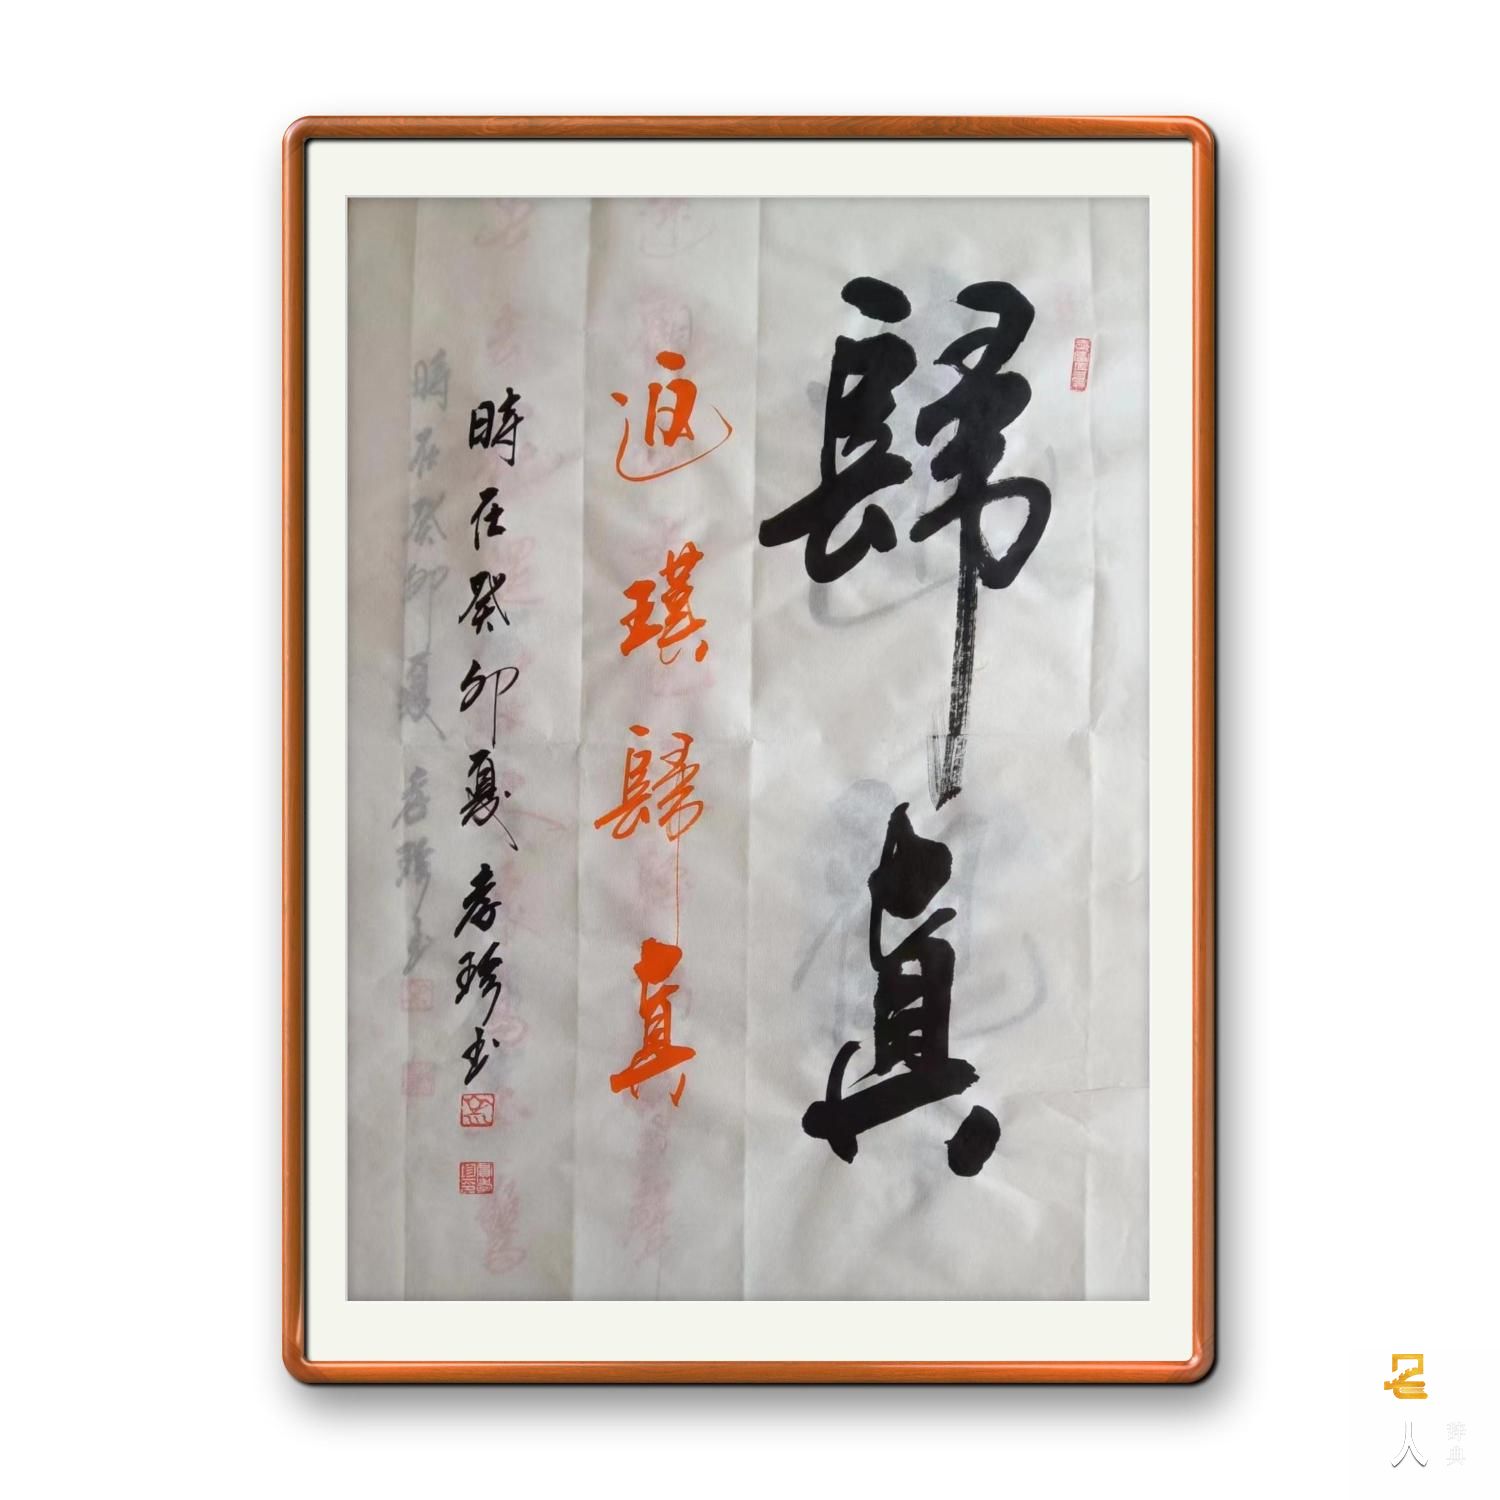 歸真
返璞歸真
時在癸卯夏孝珍書
人
辞典